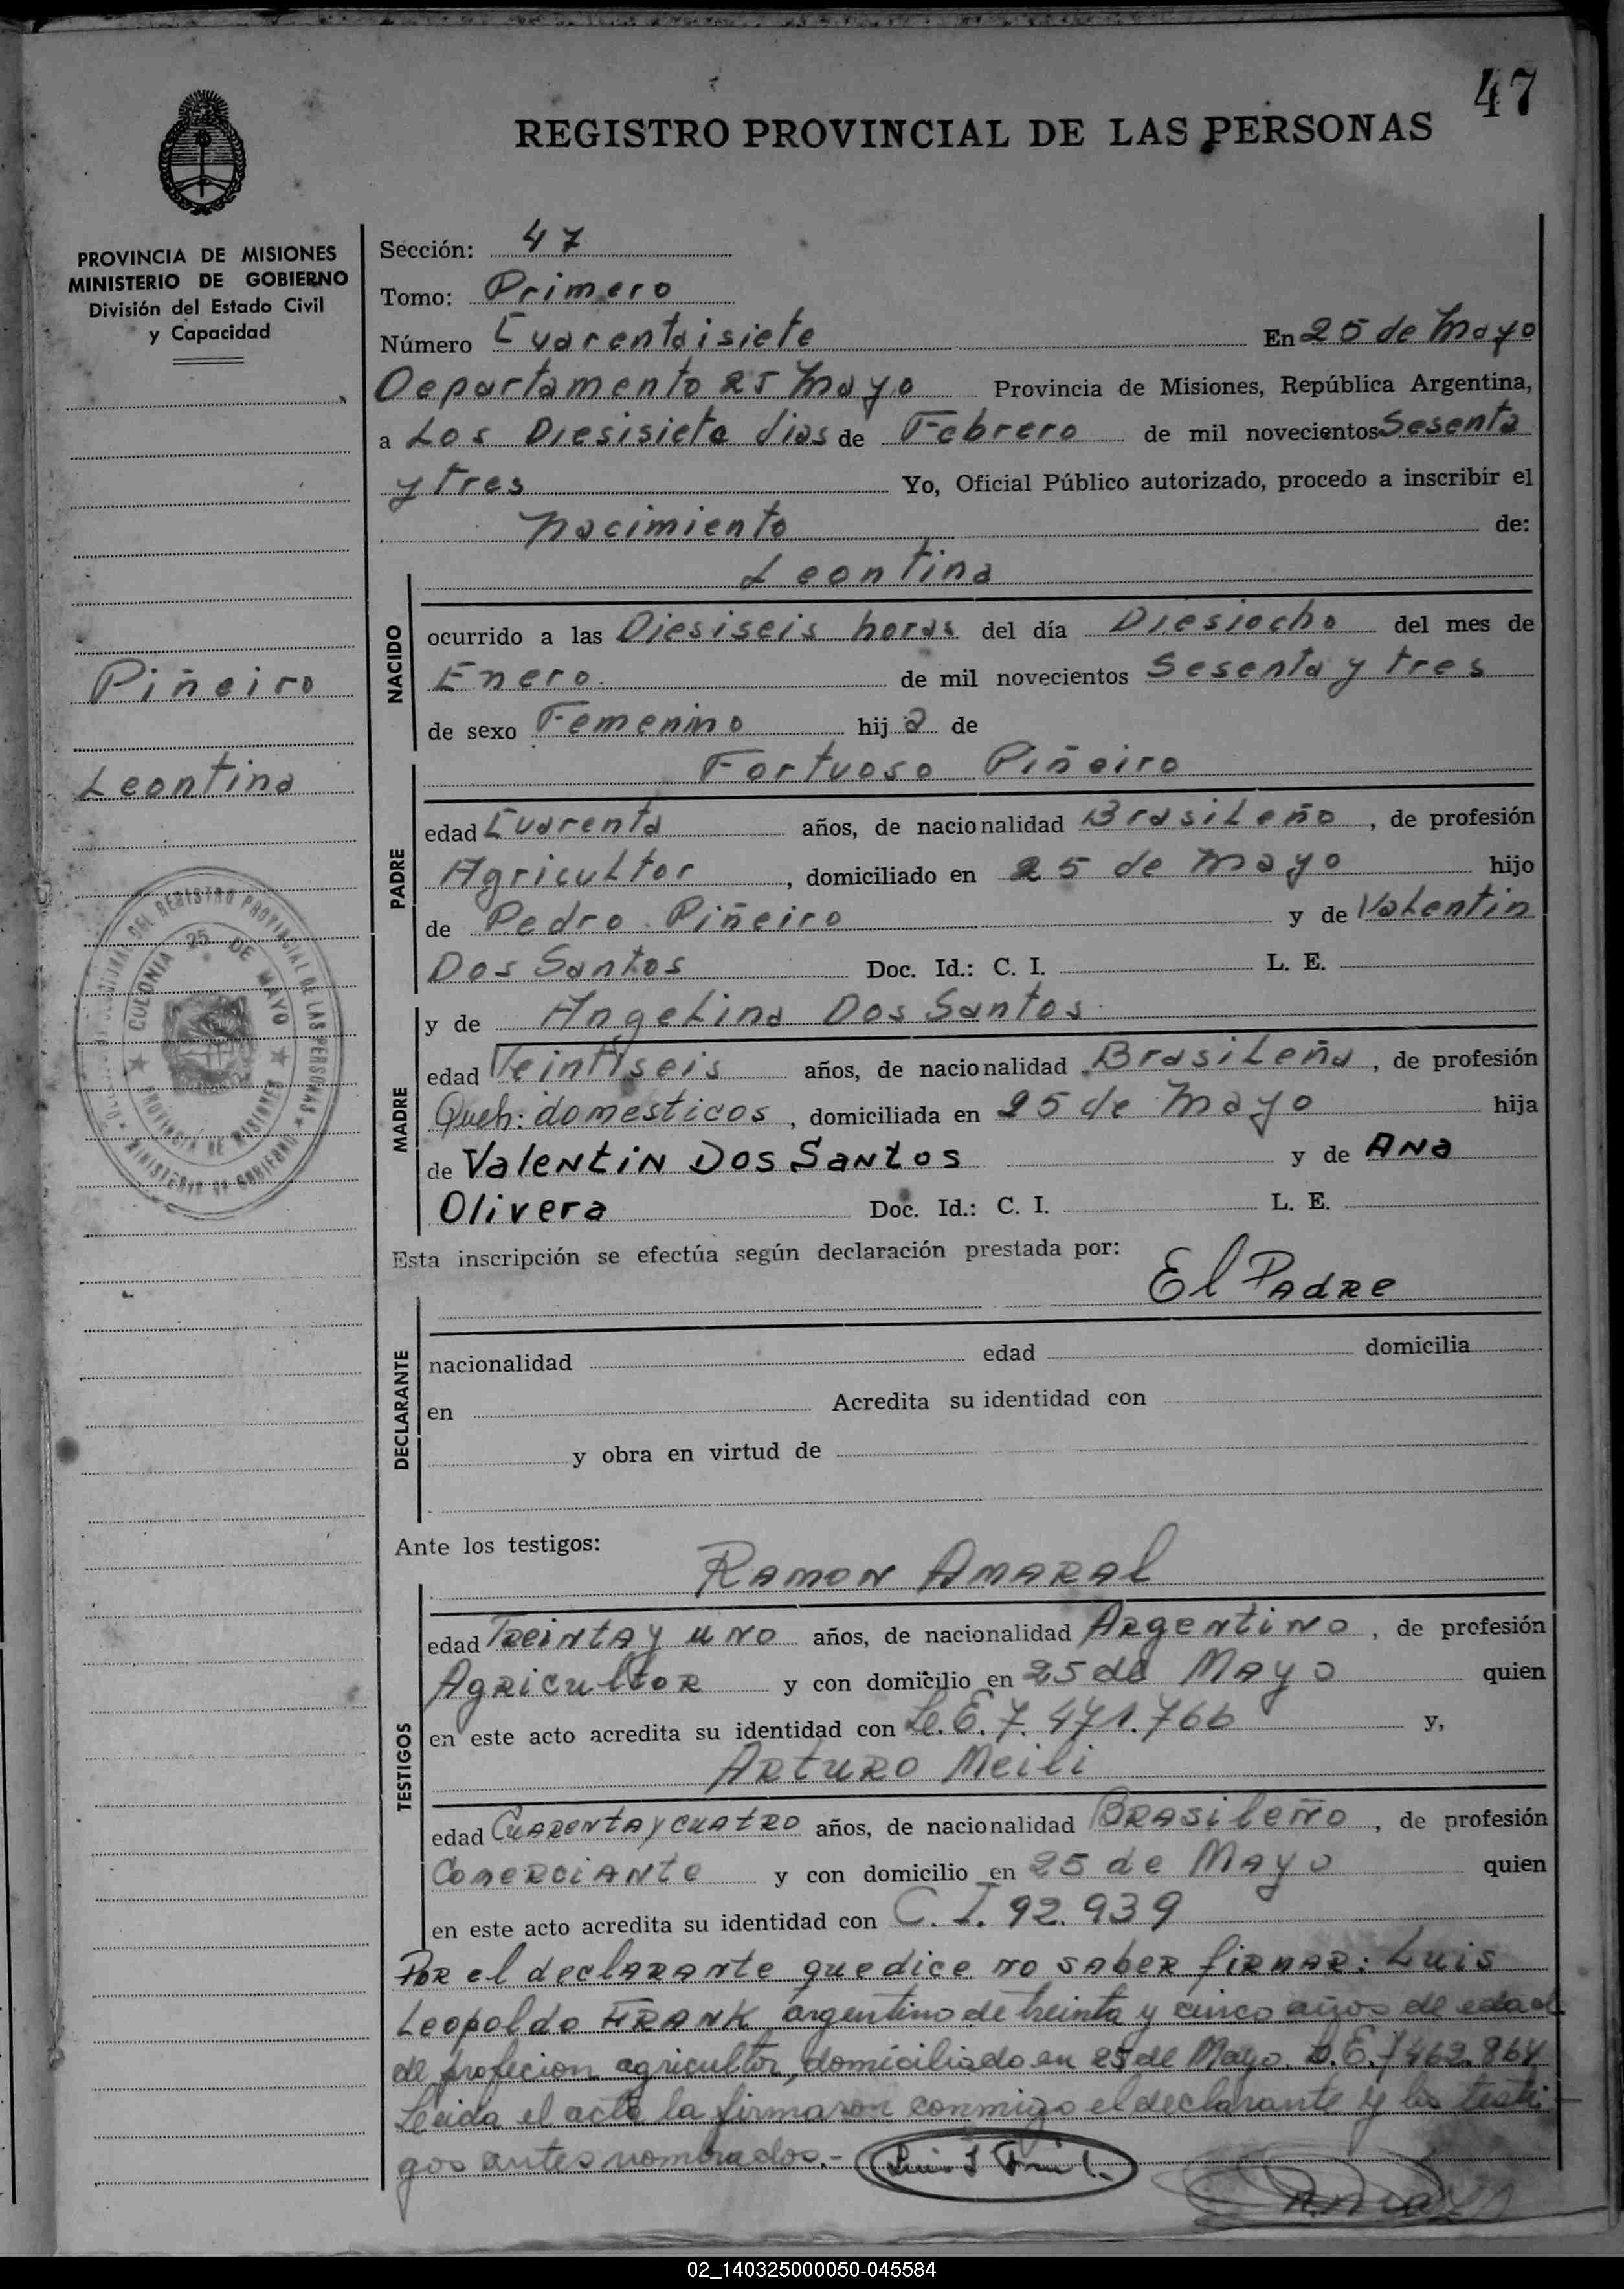 47
REGISTRO PROVINCIAL DE LAS PERSONAS
PROVINCIA DE MISIONES
MINISTERIO DE GOBIERNO
División del Estado Civil
y Capacidad
Piñeiro
Leontina
COLONIA 25 DE MAYO
PROVINCIA DE MISIONES
DEL REGISTRO PROVINCIAL DE LAS PERSONAS
MINISTERIO DE GOBIERNO
Sección: 47
Tomo: Primero
Número Cuarentaisiete En 25 de Mayo
Departamento 25 Mayo Provincia de Misiones, República Argentina,
a Los Diesisiete dias de Febrero de mil novecientos Sesenta
y tres Yo, Oficial Público autorizado, procedo a inscribir el
nacimiento de:
Leontina
NACIDO
ocurrido a las Diesiseis horas del día Diesiocho del mes de
Enero. de mil novecientos Sesenta y tres
de sexo Femenino hija de
Fortuoso Piñeiro
PADRE
edad Cuarenta años, de nacionalidad Brasileño, de profesión
Agricultor, domiciliado en 25 de Mayo hijo
de Pedro Piñeiro y de Valentin
Dos Santos Doc. Id.: C. I. L. E.
MADRE
y de Angelina Dos Santos
edad Veintiseis años, de nacionalidad Brasileña, de profesión
Queh: domesticos, domiciliada en 25 de Mayo hija
de Valentin Dos Santos y de Ana
Olivera Doc. Id.: C. I. L. E.
Esta inscripción se efectúa según declaración prestada por:
El Padre
DECLARANTE
nacionalidad edad domicilia
en Acredita su identidad con
y obra en virtud de
Ante los testigos:
Ramon Amaral
TESTIGOS
edad Treinta y uno años, de nacionalidad Argentino, de profesión
Agricultor y con domicilio en 25 de Mayo quien
en este acto acredita su identidad con Le. E. 7.471.766 y,
Arturo Meili
edad Cuarenta y cuatro años, de nacionalidad Brasileño, de profesión
Comerciante y con domicilio en 25 de Mayo quien
en este acto acredita su identidad con C. I. 92.939
Por el declarante que dice no saber firmar: Luis
Leopoldo FRANK argentino de treinta y cinco años de edad
de profecion agricultor, domiciliado en 25 de Mayo. L.E. 7462.964
Leida el acta la firmaron conmigo el declarante y los testi-
gos antes nombrados.-
02_140325000050-045584